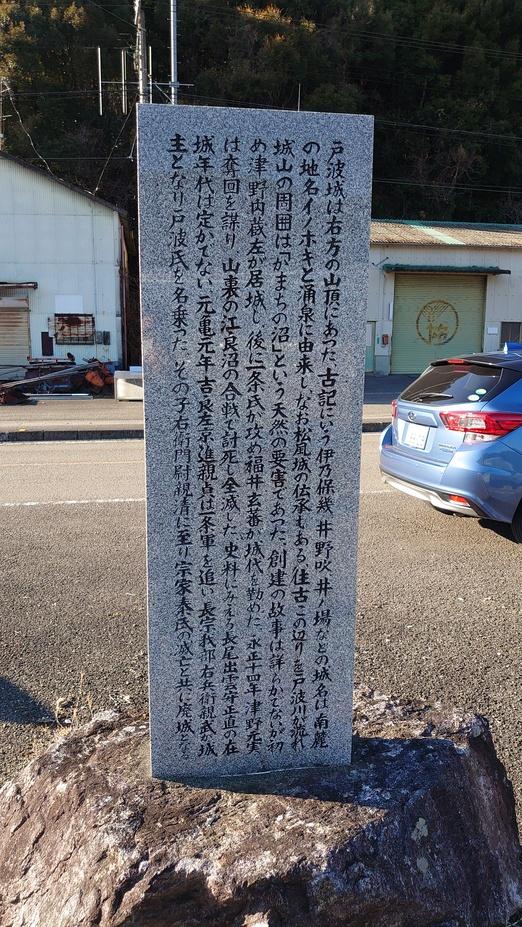 戸波城は右方の山頂にあった 古記にいう伊乃保幾 井野吹 井ノ場などの城名は 南麓
の地名イノホキと涌泉に由来し なお松風城の伝承もある 往古この辺りを戸波川が流れ
城山の周囲は「かまちの沼」という天然の要害であった 創建の故事は詳かでないが 初
め津野内蔵左が居城し 後に一条氏が攻め福井玄蕃が城代を勤めた 永正十四年 津野元実
は奪回を謀り 山裏の江良沼の合戦で討死し全滅した 史料にみえる長尾出雲守正直の在
城年代は定かでない 元亀元年 吉良左京進親貞は一条軍を追い 長宗我部右兵衛親武が城
主となり戸波氏を名乗った その子右衛門尉親清に至り 宗家秦氏の滅亡と共に廃城となる